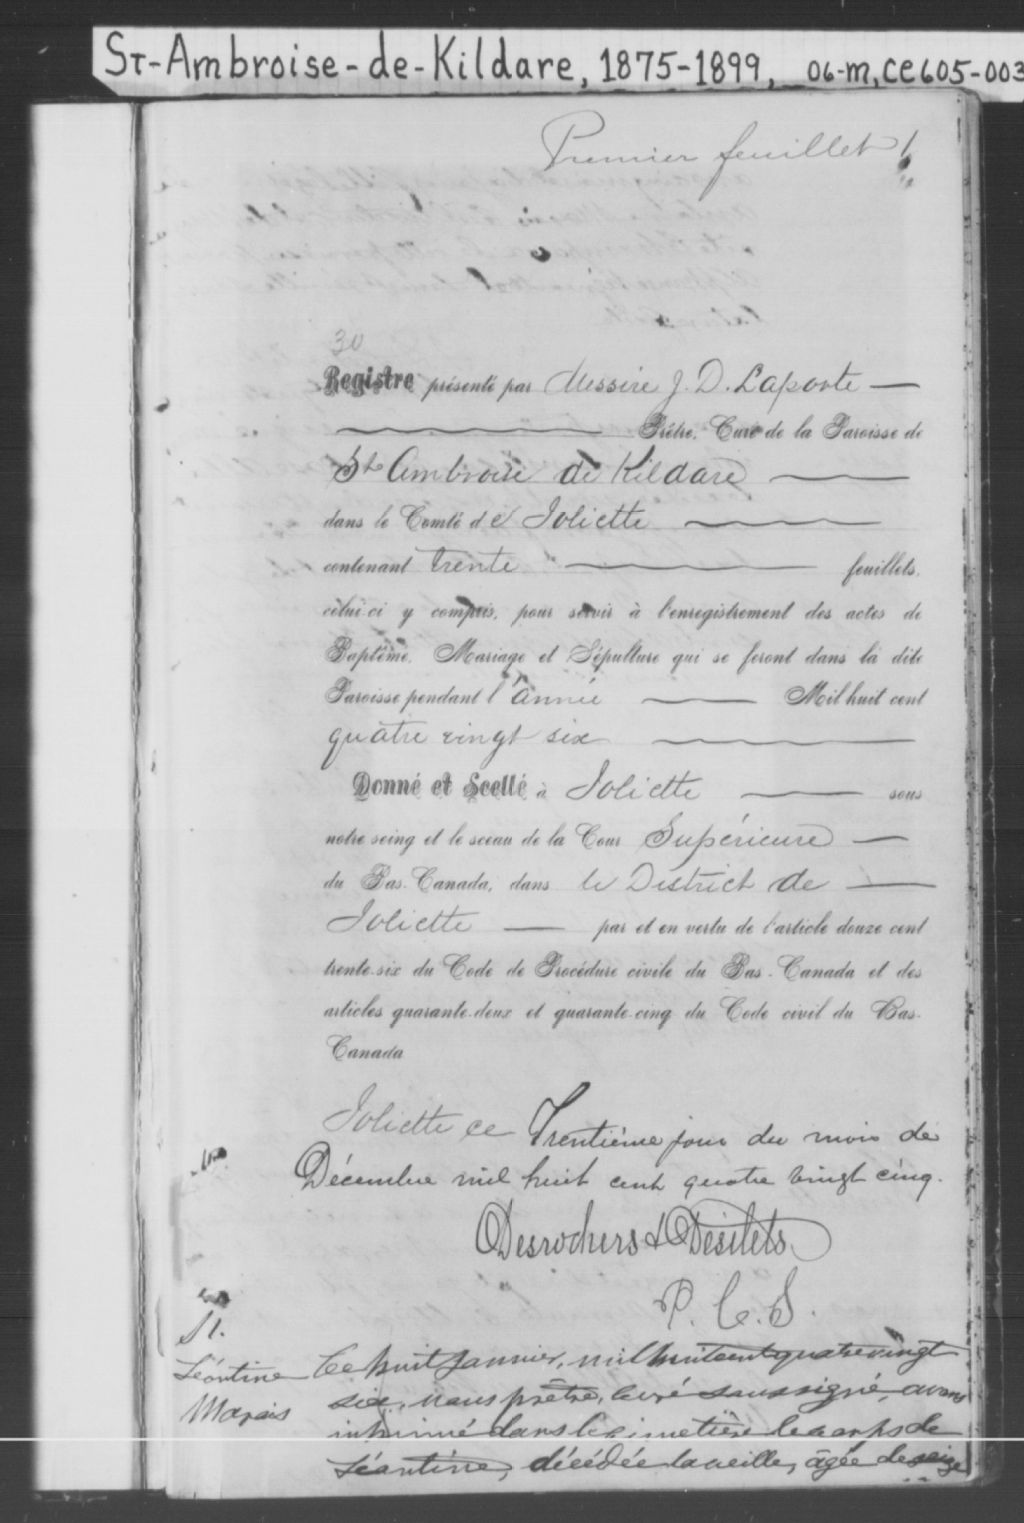 St-Ambroise-de-Kildare, 1875-1899, 06-m, CE605-003
Premier feuillet 1
30
Registre présenté par Messire J. D. Laporte —
Prêtre, Curé de la Paroisse de
St Ambroise de Kildare
dans le Comté de Joliette
contenant trente feuillets,
celui-ci y compris, pour servir à l'enregistrement des actes de
Baptême, Mariage et Sépulture qui se feront dans la dite
Paroisse pendant l'année — Mil huit cent
quatre vingt six
Donné et Scellé à Joliette — sous
notre seing et le sceau de la Cour Supérieure —
du Bas-Canada, dans le District de —
Joliette — par et en vertu de l'article douze cent
trente-six du Code de Procédure civile du Bas-Canada et des
articles quarante-deux et quarante-cinq du Code civil du Bas-
Canada
Joliette ce Trentième jour du mois de
Décembre mil huit cent quatre vingt cinq.
Desrochers & Désilets
P. C. S.
S1.
Léontine
Marais
Ce huit Janvier, mil huit cent quatre vingt
six, nous prêtre, curé soussigné, avons
inhumé dans le cimetière le corps de
Léontine, décédée la veille, âgée de seize